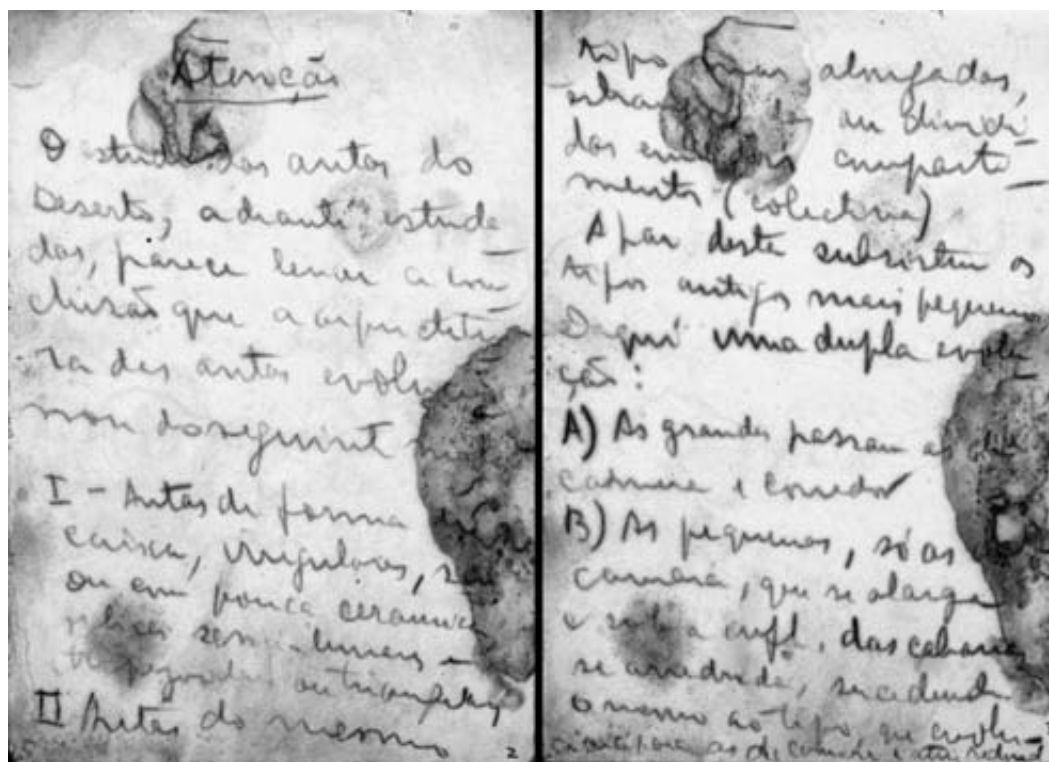 Atenção
O estudo das antas do
Deserto, adiante estuda
das, parece levar a con
clusão que a arquitetu
ra das antas evolu
nou do seguinte
I - Antas de forma
caixa, irregulares, sem
ou com pouca ceramica
semi-lunares
ou triangulares
II Antas do mesmo
2
tipo mas alongadas,
ou dividi
das em comparti
mentos (colectiva)
A par deste subsistem os
tipos antigos mais pequenos
Daqui uma dupla evolu
ção:
A) As grandes passam as de
camara e corredor
B) As pequenas, só as
camara, que se alarga
e sob a infl. das cabanas
se arredonda, sucedendo
o mesmo ao tipo que evolu
as de camara e